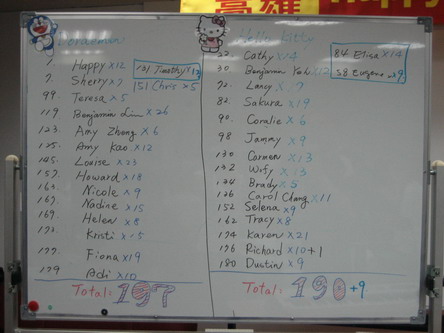 高雄
Doraemon
Happy x12
131 Timothy x12
7. Sherry x7
151 Chris x5
99. Teresa x5
119 Benjamin Lin x26
123. Amy Zhong x6
125. Amy Kao x12
145. Louise x23
157. Howard x18
163. Nicole x9
Nadine x15
169. Helen x8
Kristi x15
177. Fiona x19
179 Adi x10
Total: 197
Hello Kitty
22. Cathy x14
84 Elisa x14
30 Benjamin Yeh x12
58 Eugene x9
72. Lancy x7
82. Sakura x19
90. Coralie x6
98 Jammy x9
130 Carmen x13
132 Wify x13
134 Brady x5
136 Carol Chang x11
152 Selena x9
162 Tracy x8
174 Karen x21
176 Richard x10+1
180 Dustin x9
Total: 190+9